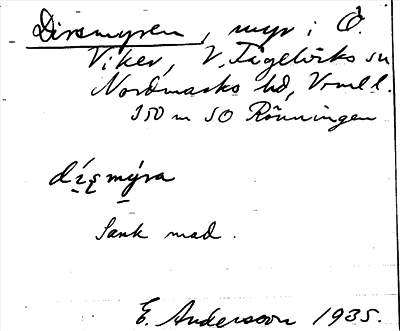 Dirsmyren, myr i Ö.
Viker, V. Fågelviks sn
Nordmarks hd, Vrml l.
350 m SO Rönningen
dı́rs̨mýra
Sank mad.
E. Andersson 1935.